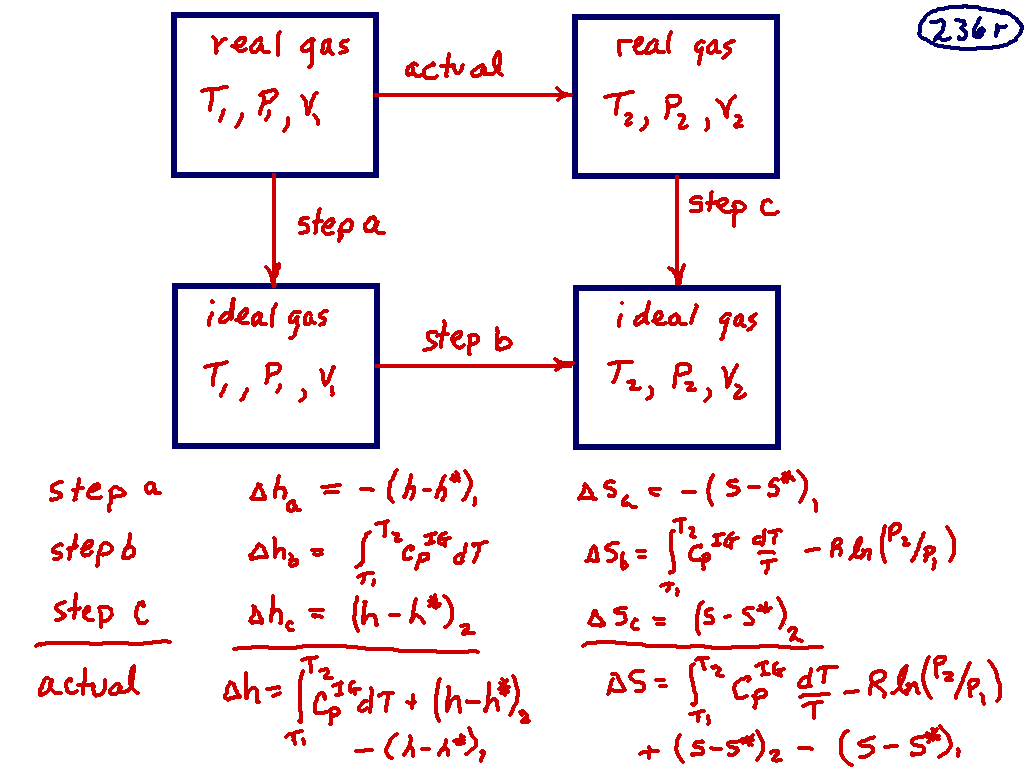 236r
real gas
T₁, P₁, V₁
actual
real gas
T₂, P₂, V₂
step a
step c
ideal gas
T₁, P₁, V₁
step b
ideal gas
T₂, P₂, V₂
step a Δhₐ = -(h-h*)₁ Δsₐ = -(s-s*)₁
step b Δh_b = ∫_{T₁}^{T₂} C_P^{IG} dT Δs_b = ∫_{T₁}^{T₂} C_P^{IG} dT/T - R ln(P₂/P₁)
step c Δh_c = (h-h*)₂ Δs_c = (s-s*)₂
actual Δh = ∫_{T₁}^{T₂} C_P^{IG} dT + (h-h*)₂ Δs = ∫_{T₁}^{T₂} C_P^{IG} dT/T - R ln(P₂/P₁)
-(h-h*)₁ + (s-s*)₂ - (s-s*)₁